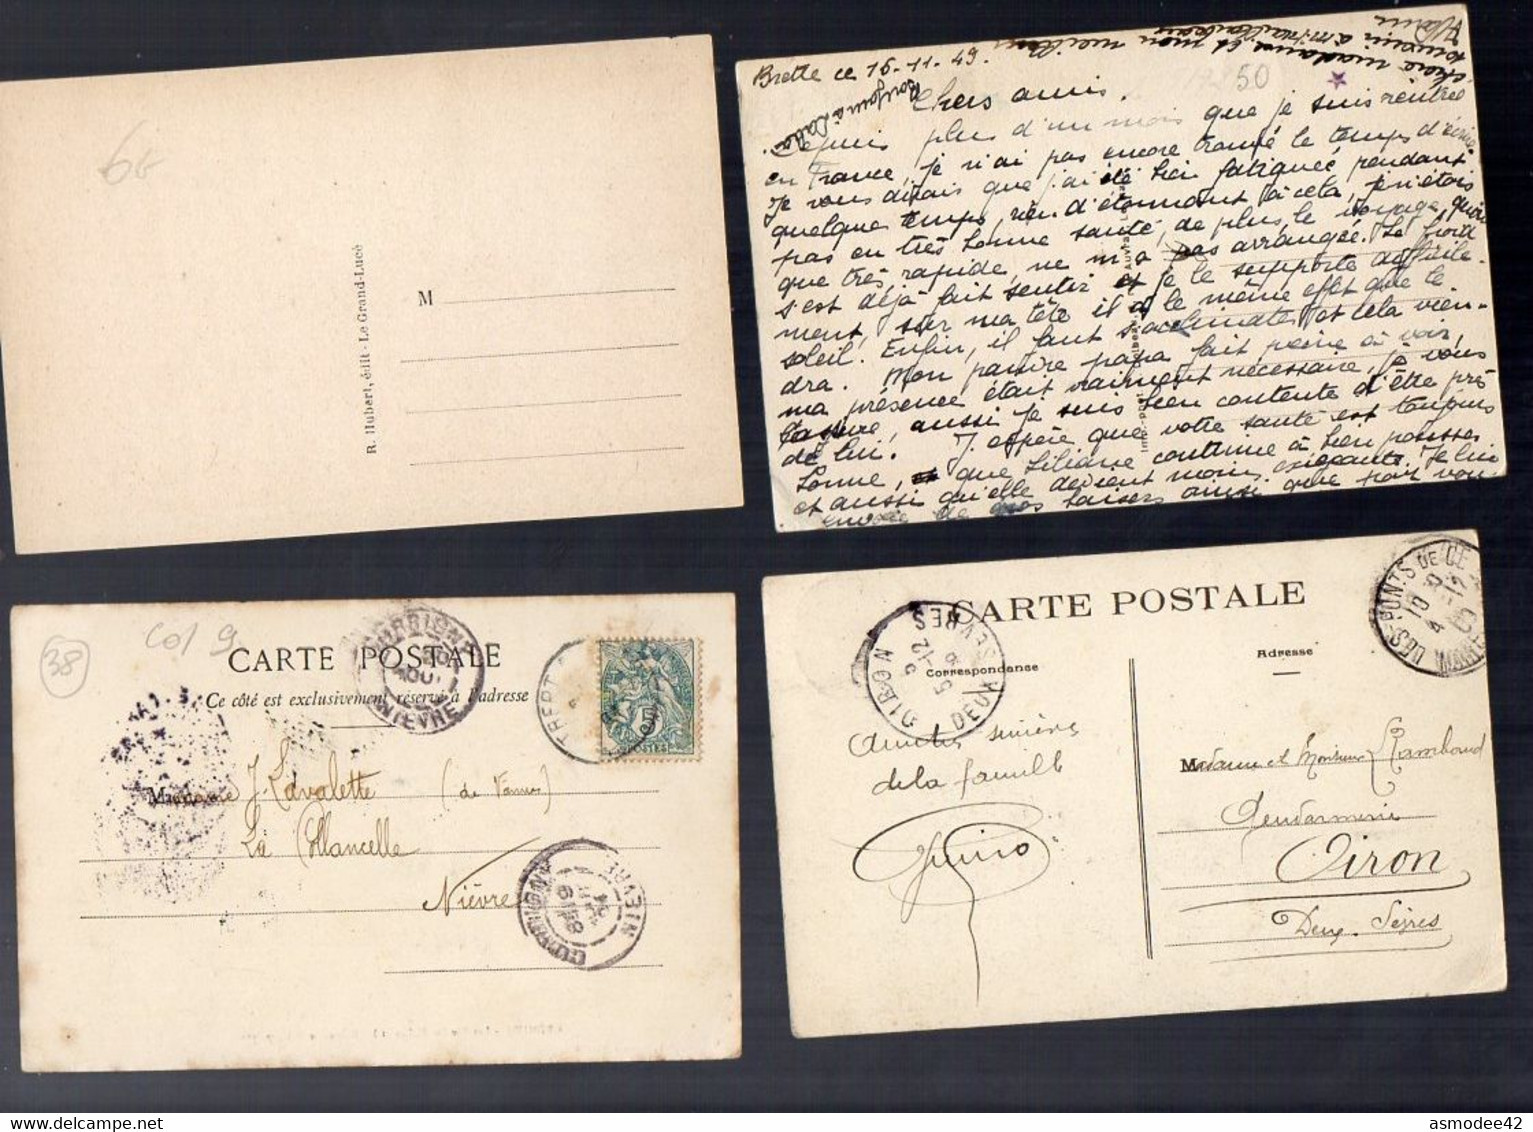 6€
R. Hubert, édit - Le Grand-Lucé
M
Brette ce 15-11-49.
50
Chers amis.
Depuis plus d'un mois que je suis rentrée
en France, je n'ai pas encore trouvé le temps d'écrire
Je vous dirais que j'ai été bien fatiguée pendant
quelque temps, rien d'étonnant à cela, je n'étois
pas en très bonne santé, de plus, le voyage, quoi
que très rapide, ne m'a pas arrangée. Le froid
s'est déjà fait sentir et je le supporte difficile-
ment, sur ma tête il a le même effet que le
soleil. Enfin, il faut s'acclimater et cela vien-
dra. Mon pauvre papa fait peine à voir,
ma présence était vraiment nécessaire, je vous
assure, aussi je suis bien contente d'être près
de lui. J'espère que votre santé est toujours
bonne, et que Liliane continue à bien pousser
et aussi qu'elle devient moins exigeante. Je lui
envoie de gros baisers ainsi que pour vous
chère madame et mon meilleur
souvenir à
38
col 9
CARTE POSTALE
Ce côté est exclusivement réservé à l'adresse
NIÈVRE
TREPT
5
POSTES
Madame J. Lavalette (de Vannes)
La Collancelle
Nièvre
NIEVRE
CARTE POSTALE
Correspondance
Adresse
OIRON
5-12
DEUX-SEVRES
LES PONTS DE CE
4-12
Amitiés sincères
de la famille
Madame et Monsieur Rambaud
Gendarmerie
Oiron
Deux-Sèvres
asmodee42